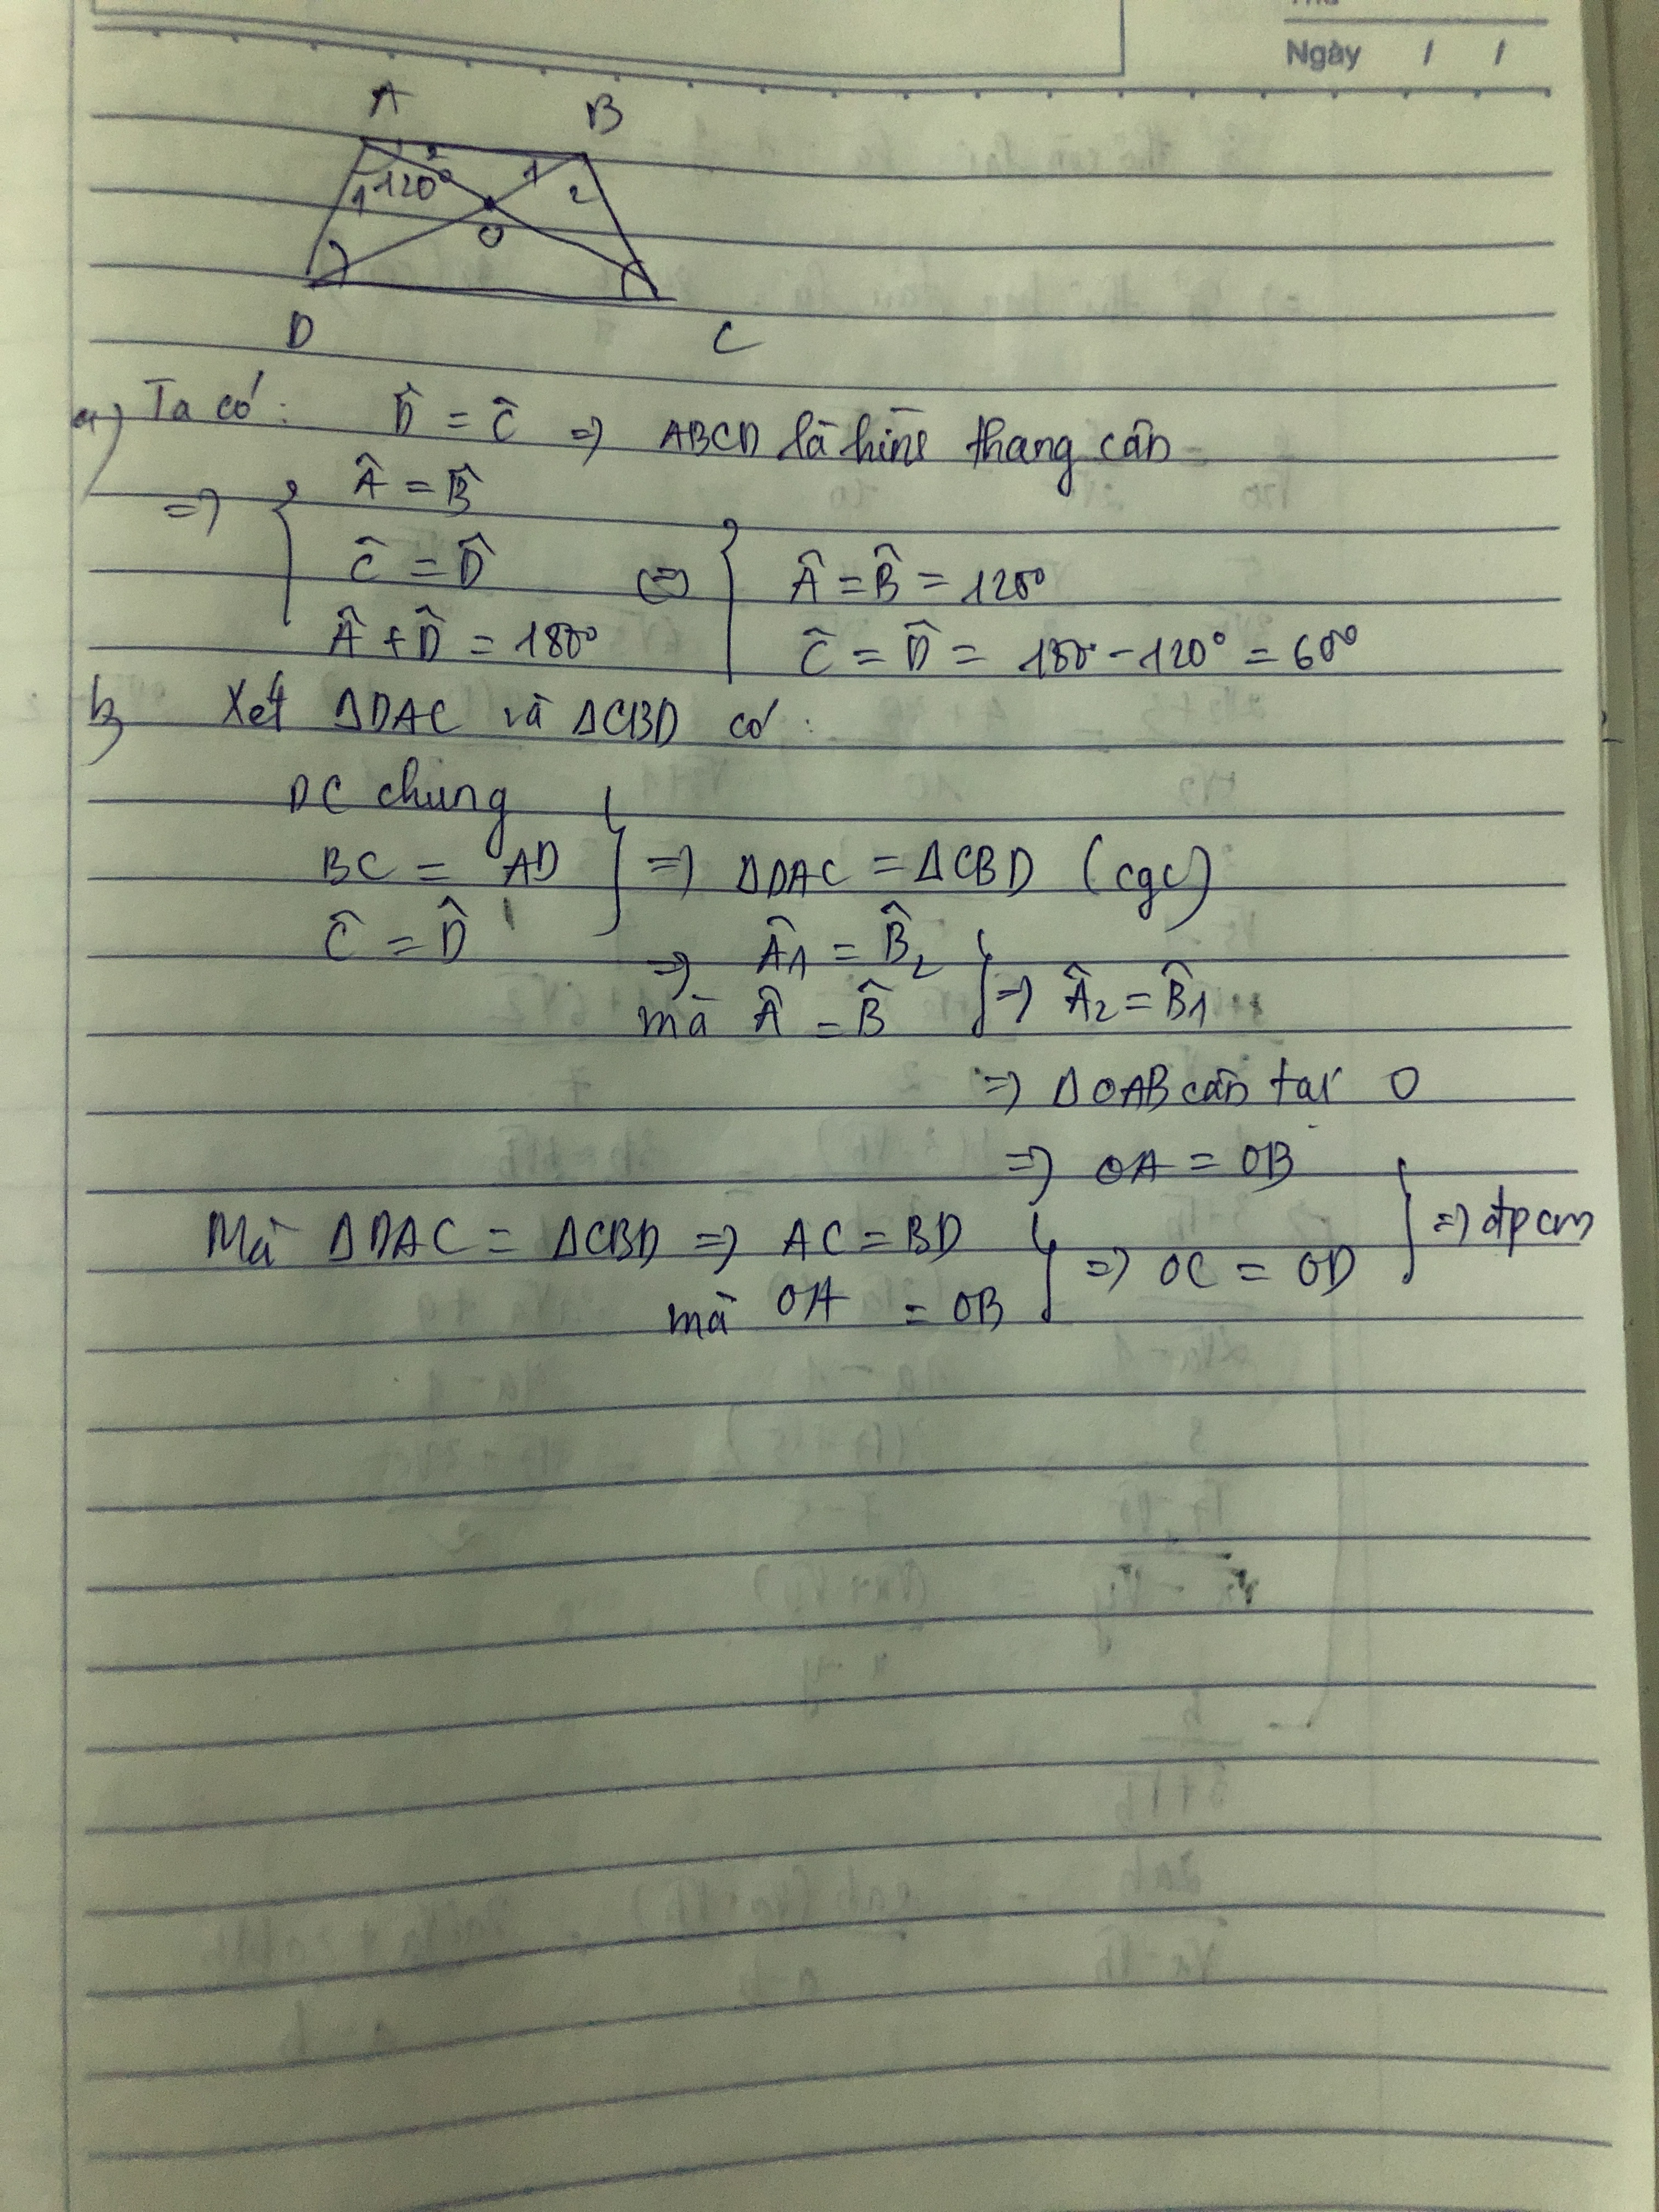 Ngày / /
A B
2 1
1 120° 2
O
D C
a) Ta có: D̂ = Ĉ => ABCD là hình thang cân
=> { Â = B̂
Ĉ = D̂ <=> { Â = B̂ = 120°
Â + D̂ = 180° Ĉ = D̂ = 180° - 120° = 60°
b) Xét ΔDAC và ΔCBD có:
DC chung
BC = AD } => ΔDAC = ΔCBD (cgc)
Ĉ = D̂ => Â1 = B̂2
mà Â = B̂ } => Â2 = B̂1
=> ΔOAB cân tại O
=> OA = OB
Mà ΔDAC = ΔCBD => AC = BD } => OC = OD } => đpcm
mà OA = OB